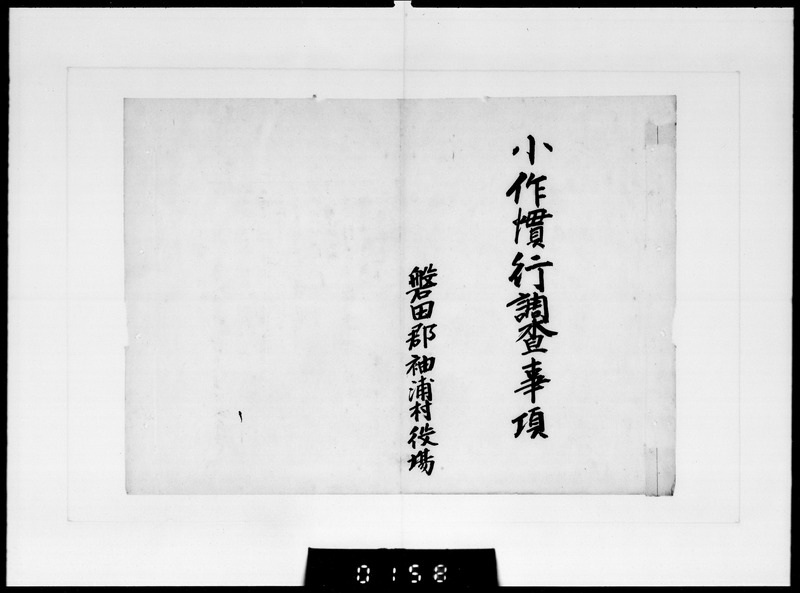 小作慣行調査事項
磐田郡袖浦村役場
0158